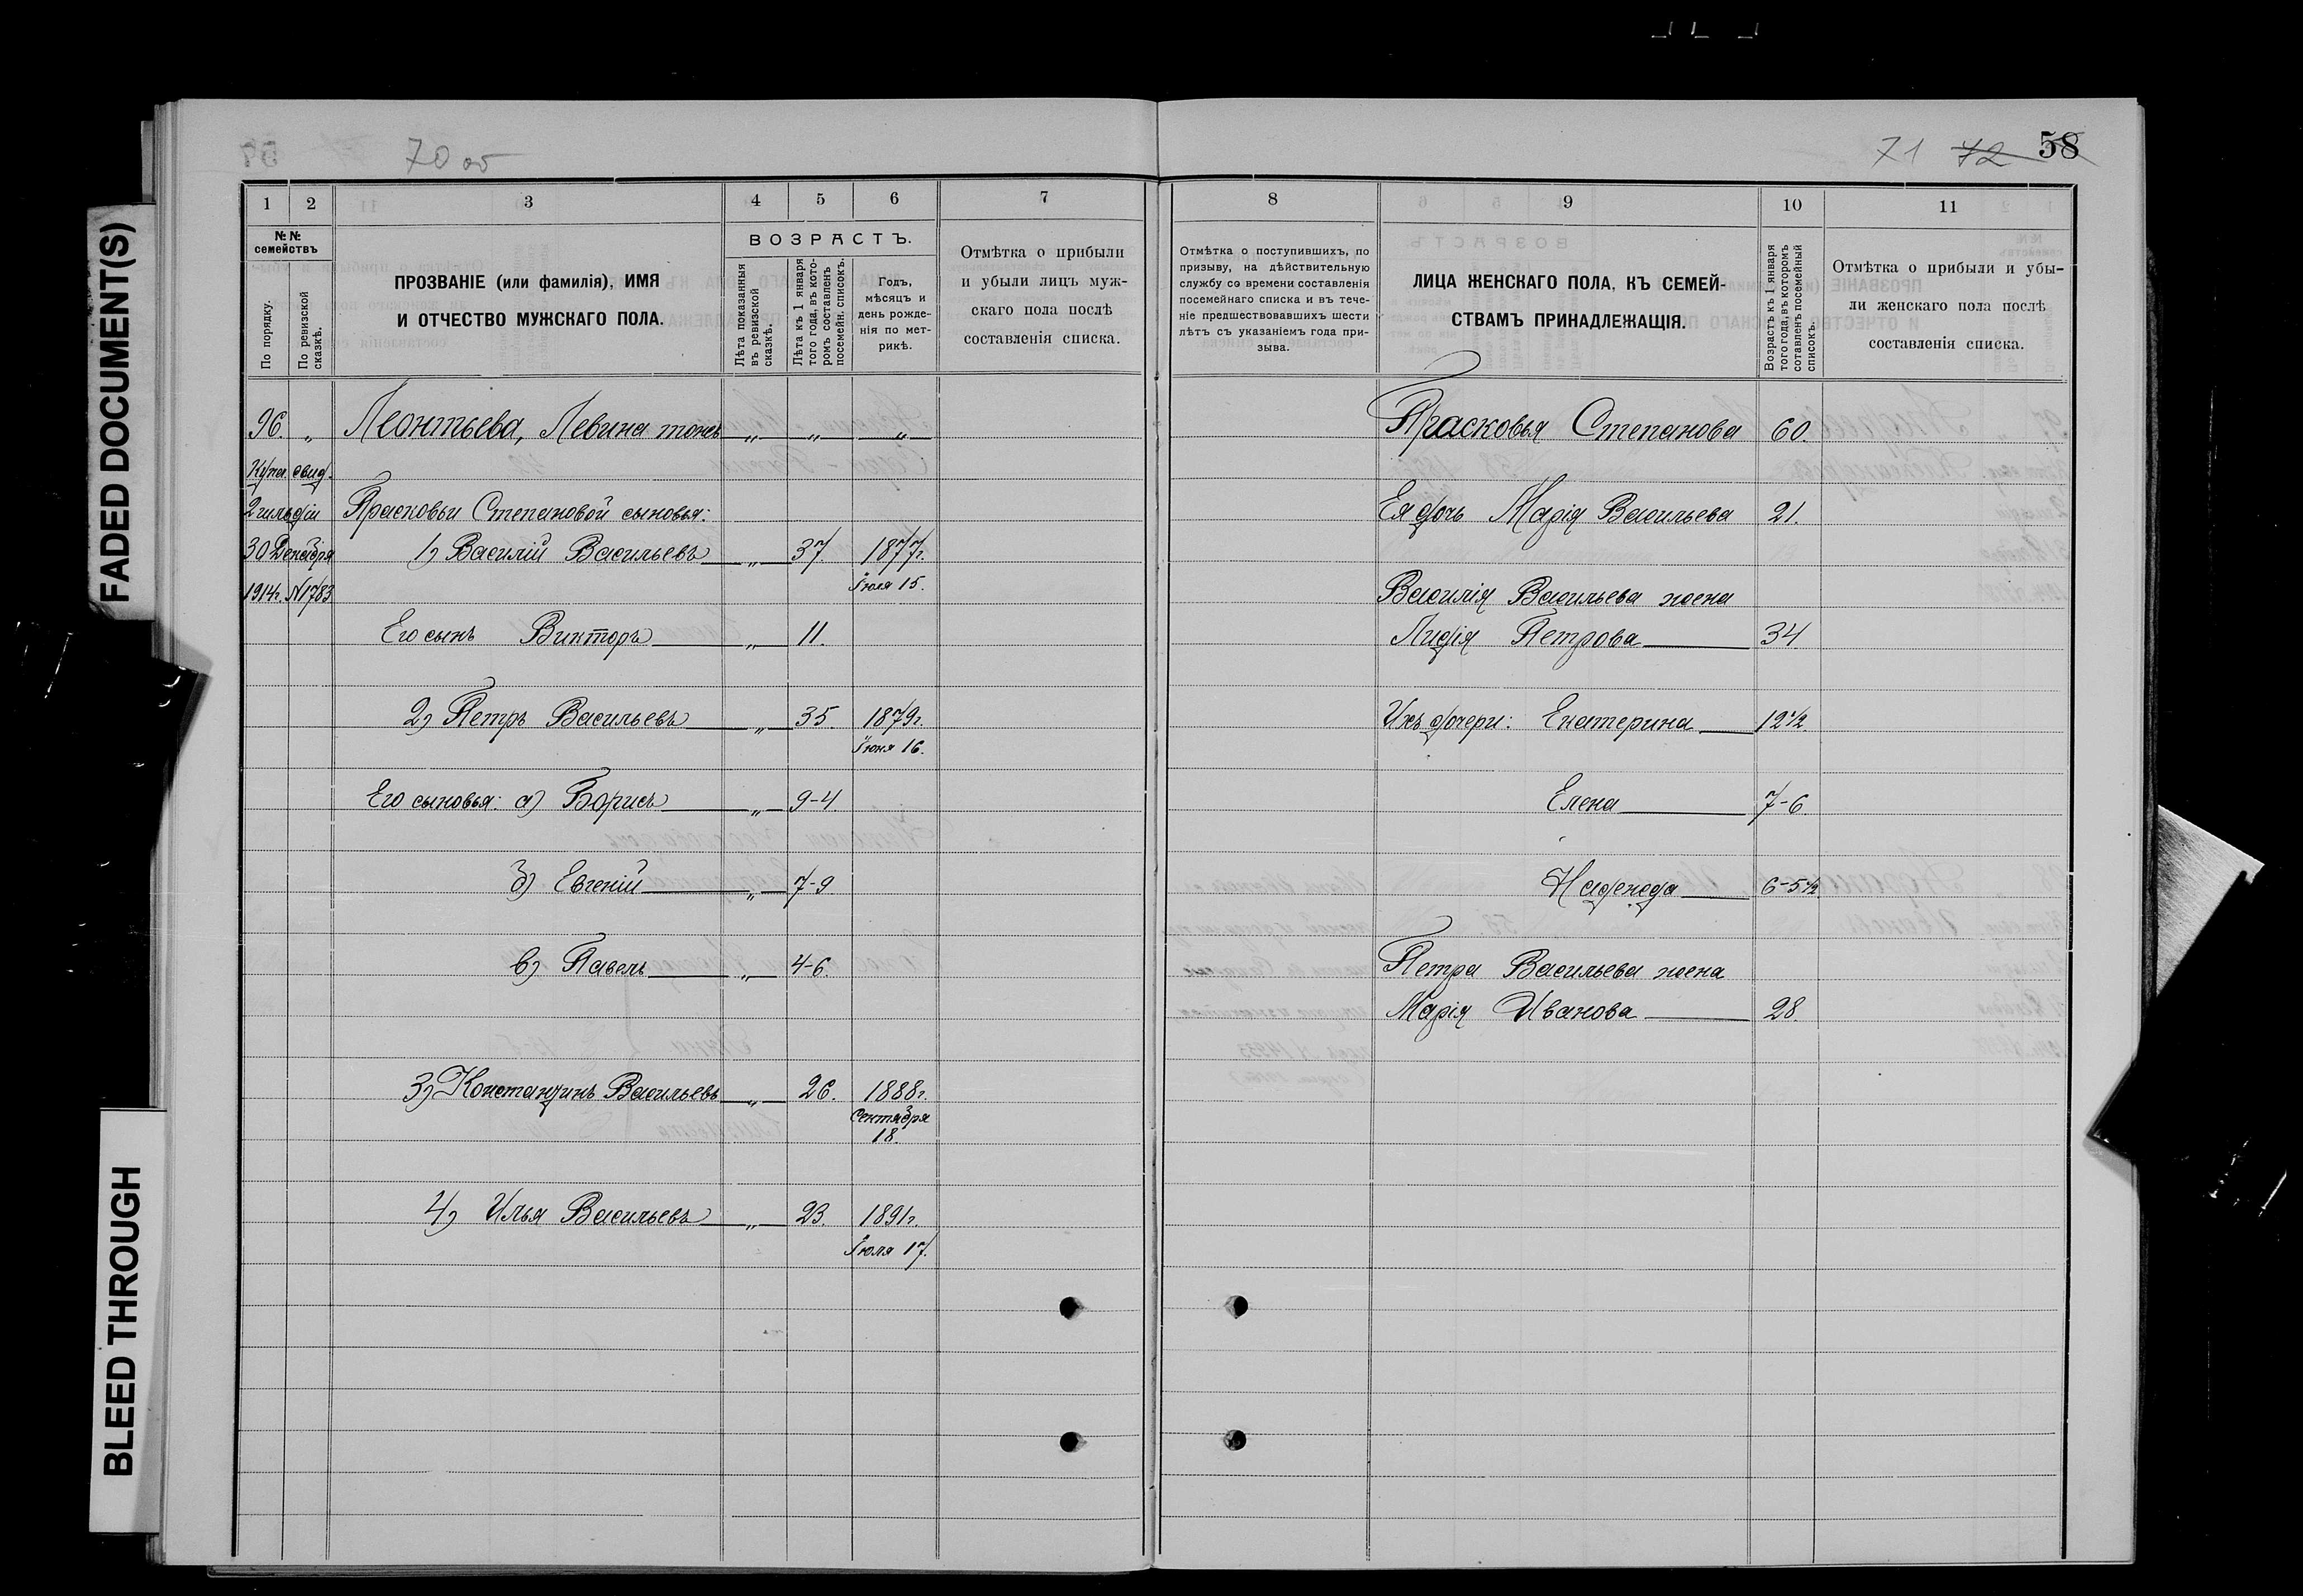 FADED DOCUMENT(S)
BLEED THROUGH
70 об
71 72 58
1 2 3 4 5 6 7
№№ семействъ
По порядку.
По ревизской сказкѣ.
ПРОЗВАНІЕ (или фамилія), ИМЯ
И ОТЧЕСТВО МУЖСКАГО ПОЛА.
ВОЗРАСТЪ.
Лѣта показанныя въ ревизской сказкѣ.
Лѣта къ 1 января того года, въ которомъ составленъ посемейн. списокъ.
Годъ,
мѣсяцъ и
день рожде-
нія по мет-
рикѣ.
Отмѣтка о прибыли
и убыли лицъ муж-
скаго пола послѣ
составленія списка.
96. „ Леонтьева, Левина тожъ „ „ „
Купч. свид.
2 гильдіи Прасковьи Степановой сыновья:
30 Декабря 1) Василій Васильевъ „ 37. 1877г.
1914г. N1783 Іюля 15.
Его сынъ Викторъ „ 11.
2) Петръ Васильевъ „ 35. 1879г.
Іюня 16.
Его сыновья: а) Борисъ „ 9-4
б) Евгеній „ 7-9
в) Павелъ „ 4-6.
3) Константинъ Васильевъ „ 26. 1888г.
Сентября
18.
4) Илья Васильевъ „ 23. 1891г.
Іюля 17.
8 9 10 11
Отмѣтка о поступившихъ, по
призыву, на дѣйствительную
службу со времени составленія
посемейнаго списка и въ тече-
ніе предшествовавшихъ шести
лѣтъ съ указаніемъ года при-
зыва.
ЛИЦА ЖЕНСКАГО ПОЛА, КЪ СЕМЕЙ-
СТВАМЪ ПРИНАДЛЕЖАЩІЯ.
Возрастъ къ 1 января
того года, въ которомъ
сотавленъ посемейный
списокъ.
Отмѣтка о прибыли и убы-
ли женскаго пола послѣ
составленія списка.
Прасковья Степанова 60.
Ея дочь Марія Васильева 21.
Василія Васильева жена
Лидія Петрова 34.
Ихъ дочери: Екатерина 12½.
Елена 7-6.
Надежда 6-5½.
Петра Васильева жена
Марія Иванова 28.